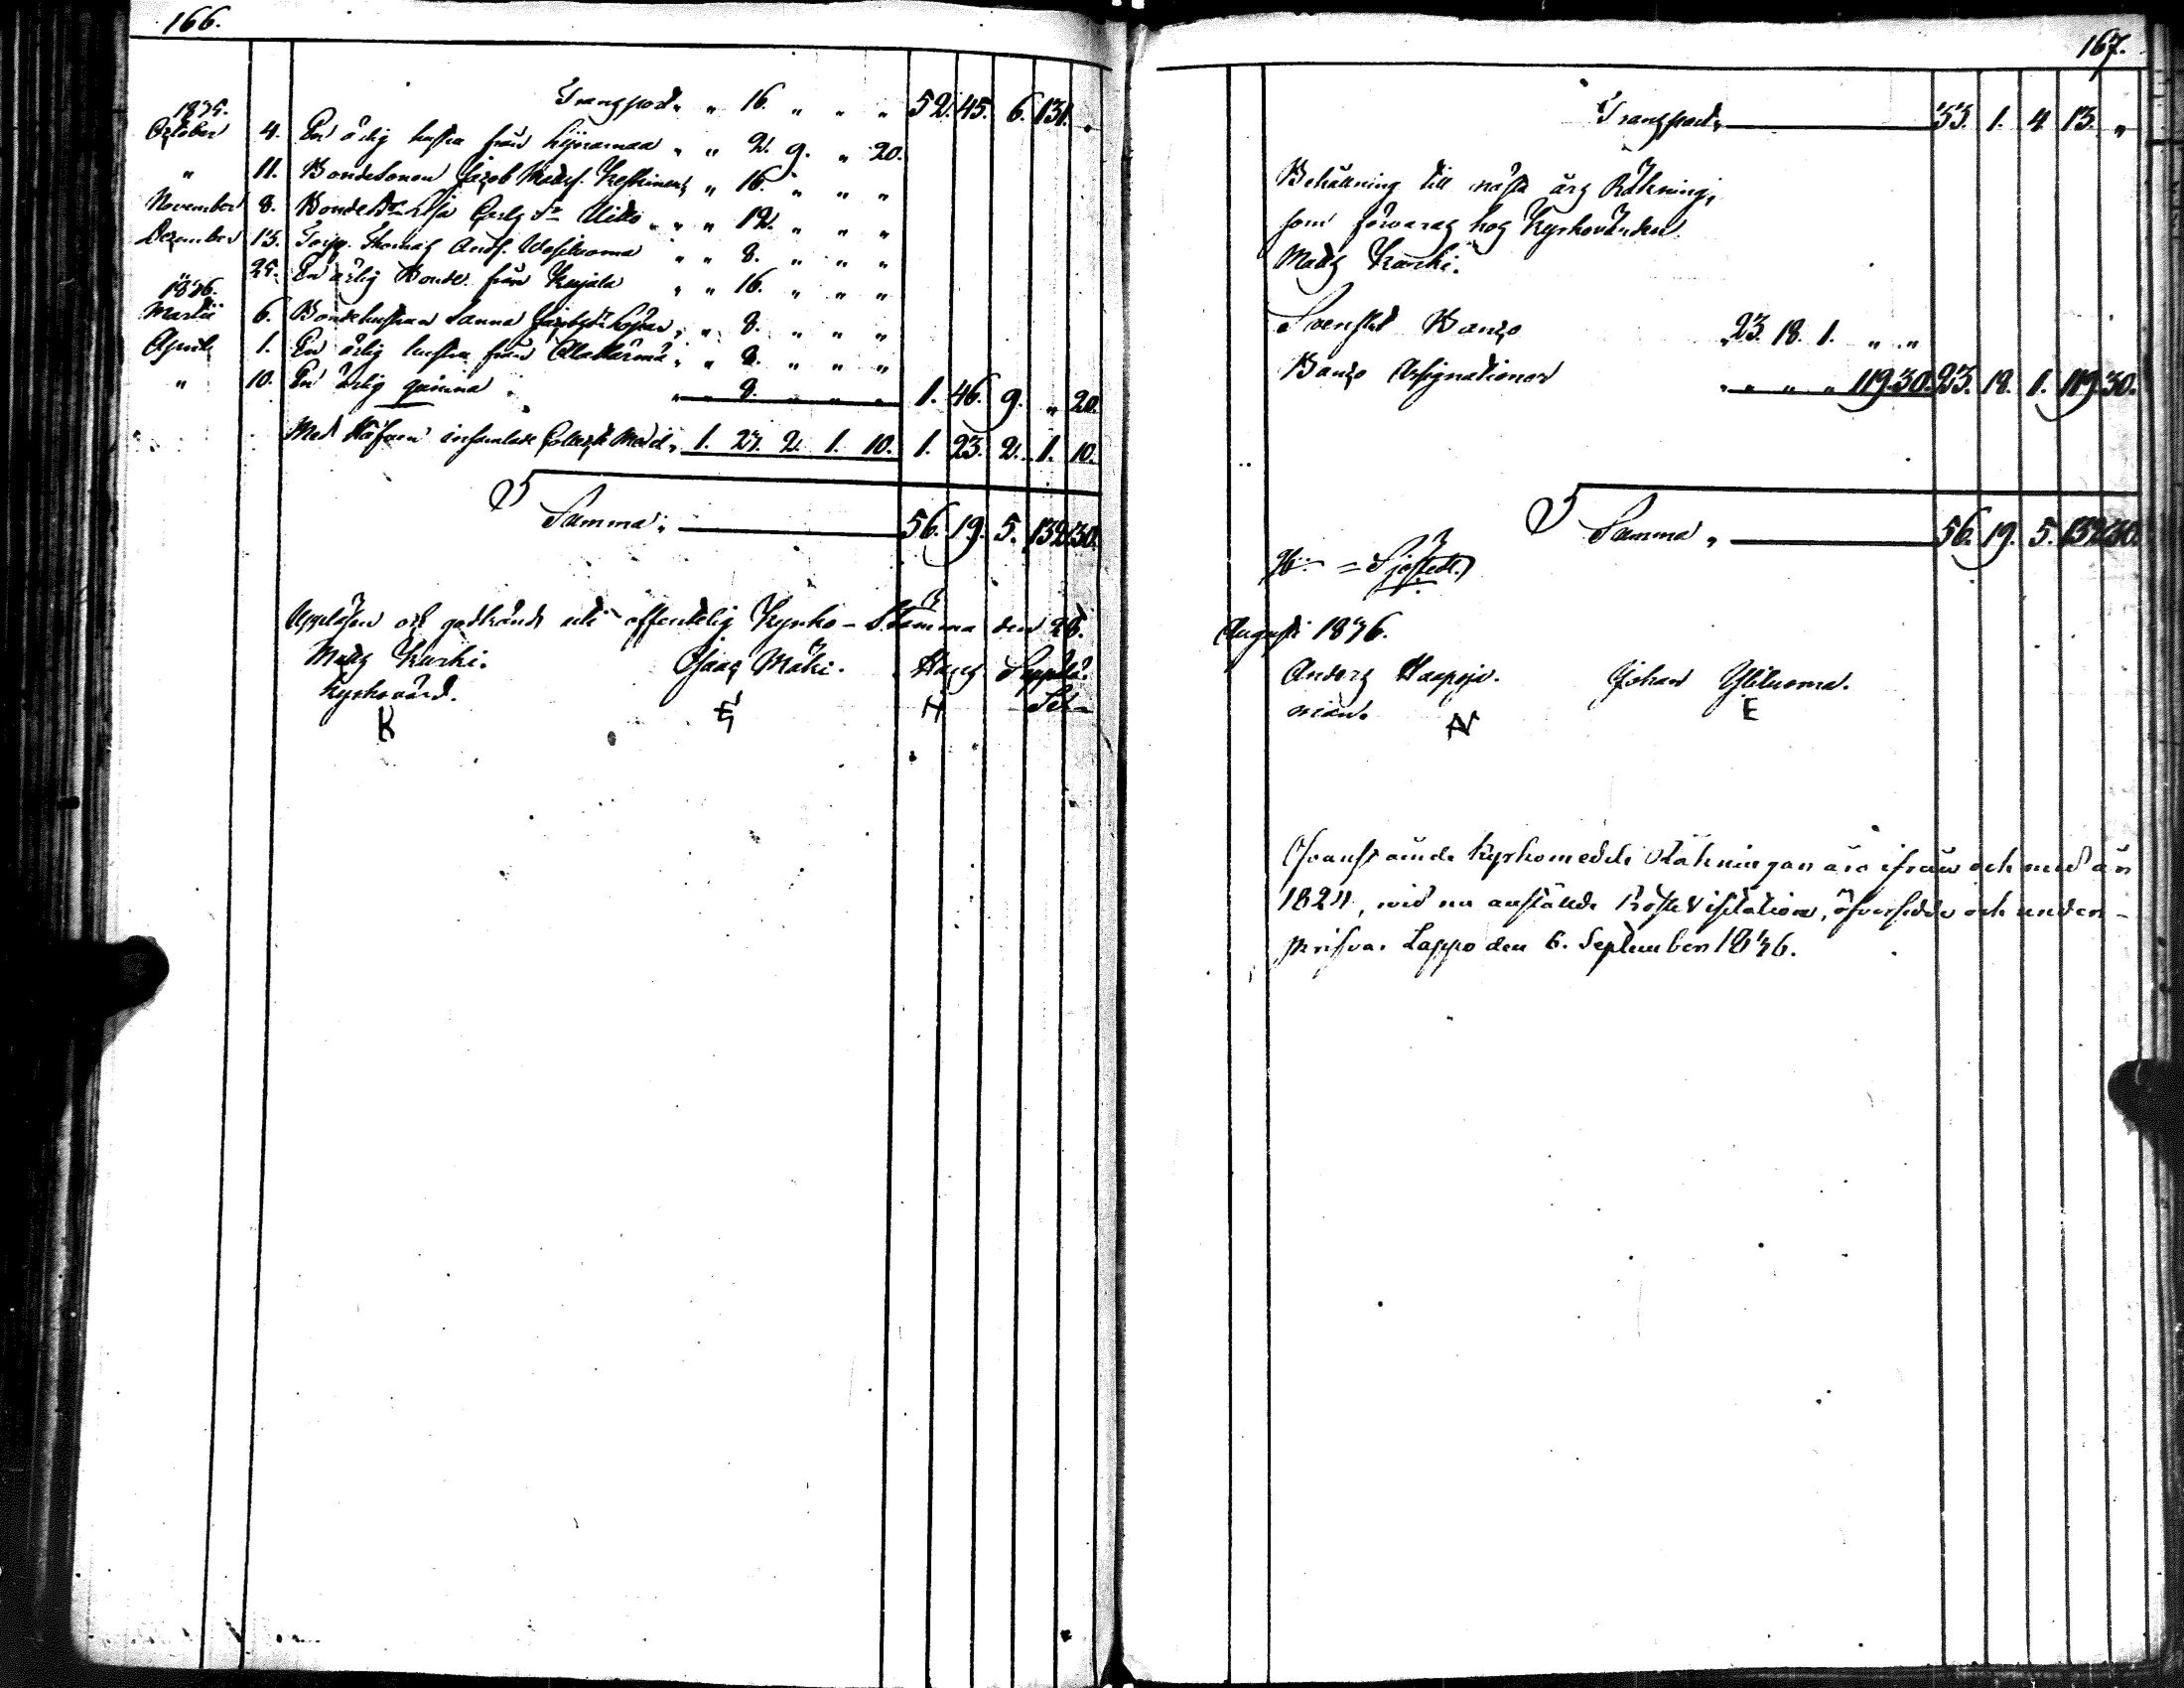 166.
Transport " " 16. " " " 52. 45. 6. 131. "
1835.
October 4. En ärlig hustra från Lijnamaa " " 2. 9. " 20.
" 11. Bondesonen Jacob Matts. " 16. " " "
November 8. BondeDr Lisa Carls Dr Uitto " " 12. " " "
December 13. Torp. Thomas Ands. " " 8. " " "
25. En ärlig Bonde från Kujala " " 16. " " "
1836.
Martii 6. Bondehustrun Sanna Jacobs Dr " " 8. " " "
April 1. En ärlig hustru från Alahärmä " " 8. " " "
" 10. En ärlig qvinna " " 8. " " " 1. 46. 9. " 20.
Med Håfven insamlade Collect Medel, 1. 23. 2. 1. 10. 1. 23. 2. 1. 10.
Summa, 56. 19. 5. 132. 30.
Uppläsen och godkänd uti offentelig Kyrko-Stämma den 28.
Matts Karki. Isaac Mäki. Hans Seppälä.
Kyrkovärd. Sex-
K H
167.
Transport, 33. 1. 4. 13. "
Behållning till nästa års Räkning,
som förvaras hos Kyrkovärden
Matts Karki.
Svenskt Banco 23. 18. 1. " "
Banco Assignationer " " " 119. 30. 23. 18. 1. 119. 30.
Summa, 56. 19. 5. 132. 30.
Sjöstedt.
Augusti 1836.
Anders Haapoja. Johan Yliluoma.
män. E
Ofvanstående Kyrkomedels Räkningar äro ifrån och med år
1824, wid nu anställde ProsteVisitation, öfversedde och under-
skrifva. Lappo den 6. September 1836.